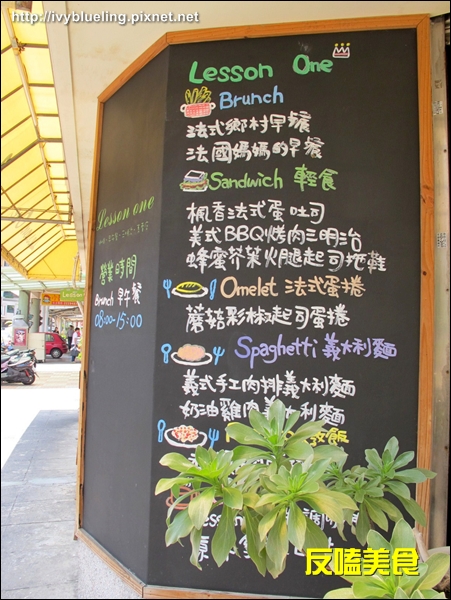 http://ivyblueling.pixnet.net
Lesson One
Brunch
法式鄉村早餐
法國媽媽的早餐
Sandwich 輕食
楓香法式蛋吐司
美式BBQ烤肉三明治
蜂蜜芥茉火腿起司拖鞋
Omelet 法式蛋捲
蘑菇彩椒起司蛋捲
Spaghetti 義大利麵
義式手工肉排義大利麵
奶油雞肉義大利麵
飯
Lesson one
營業時間
Brunch 早午餐
08:00-15:00
Lesson
反嗑美食